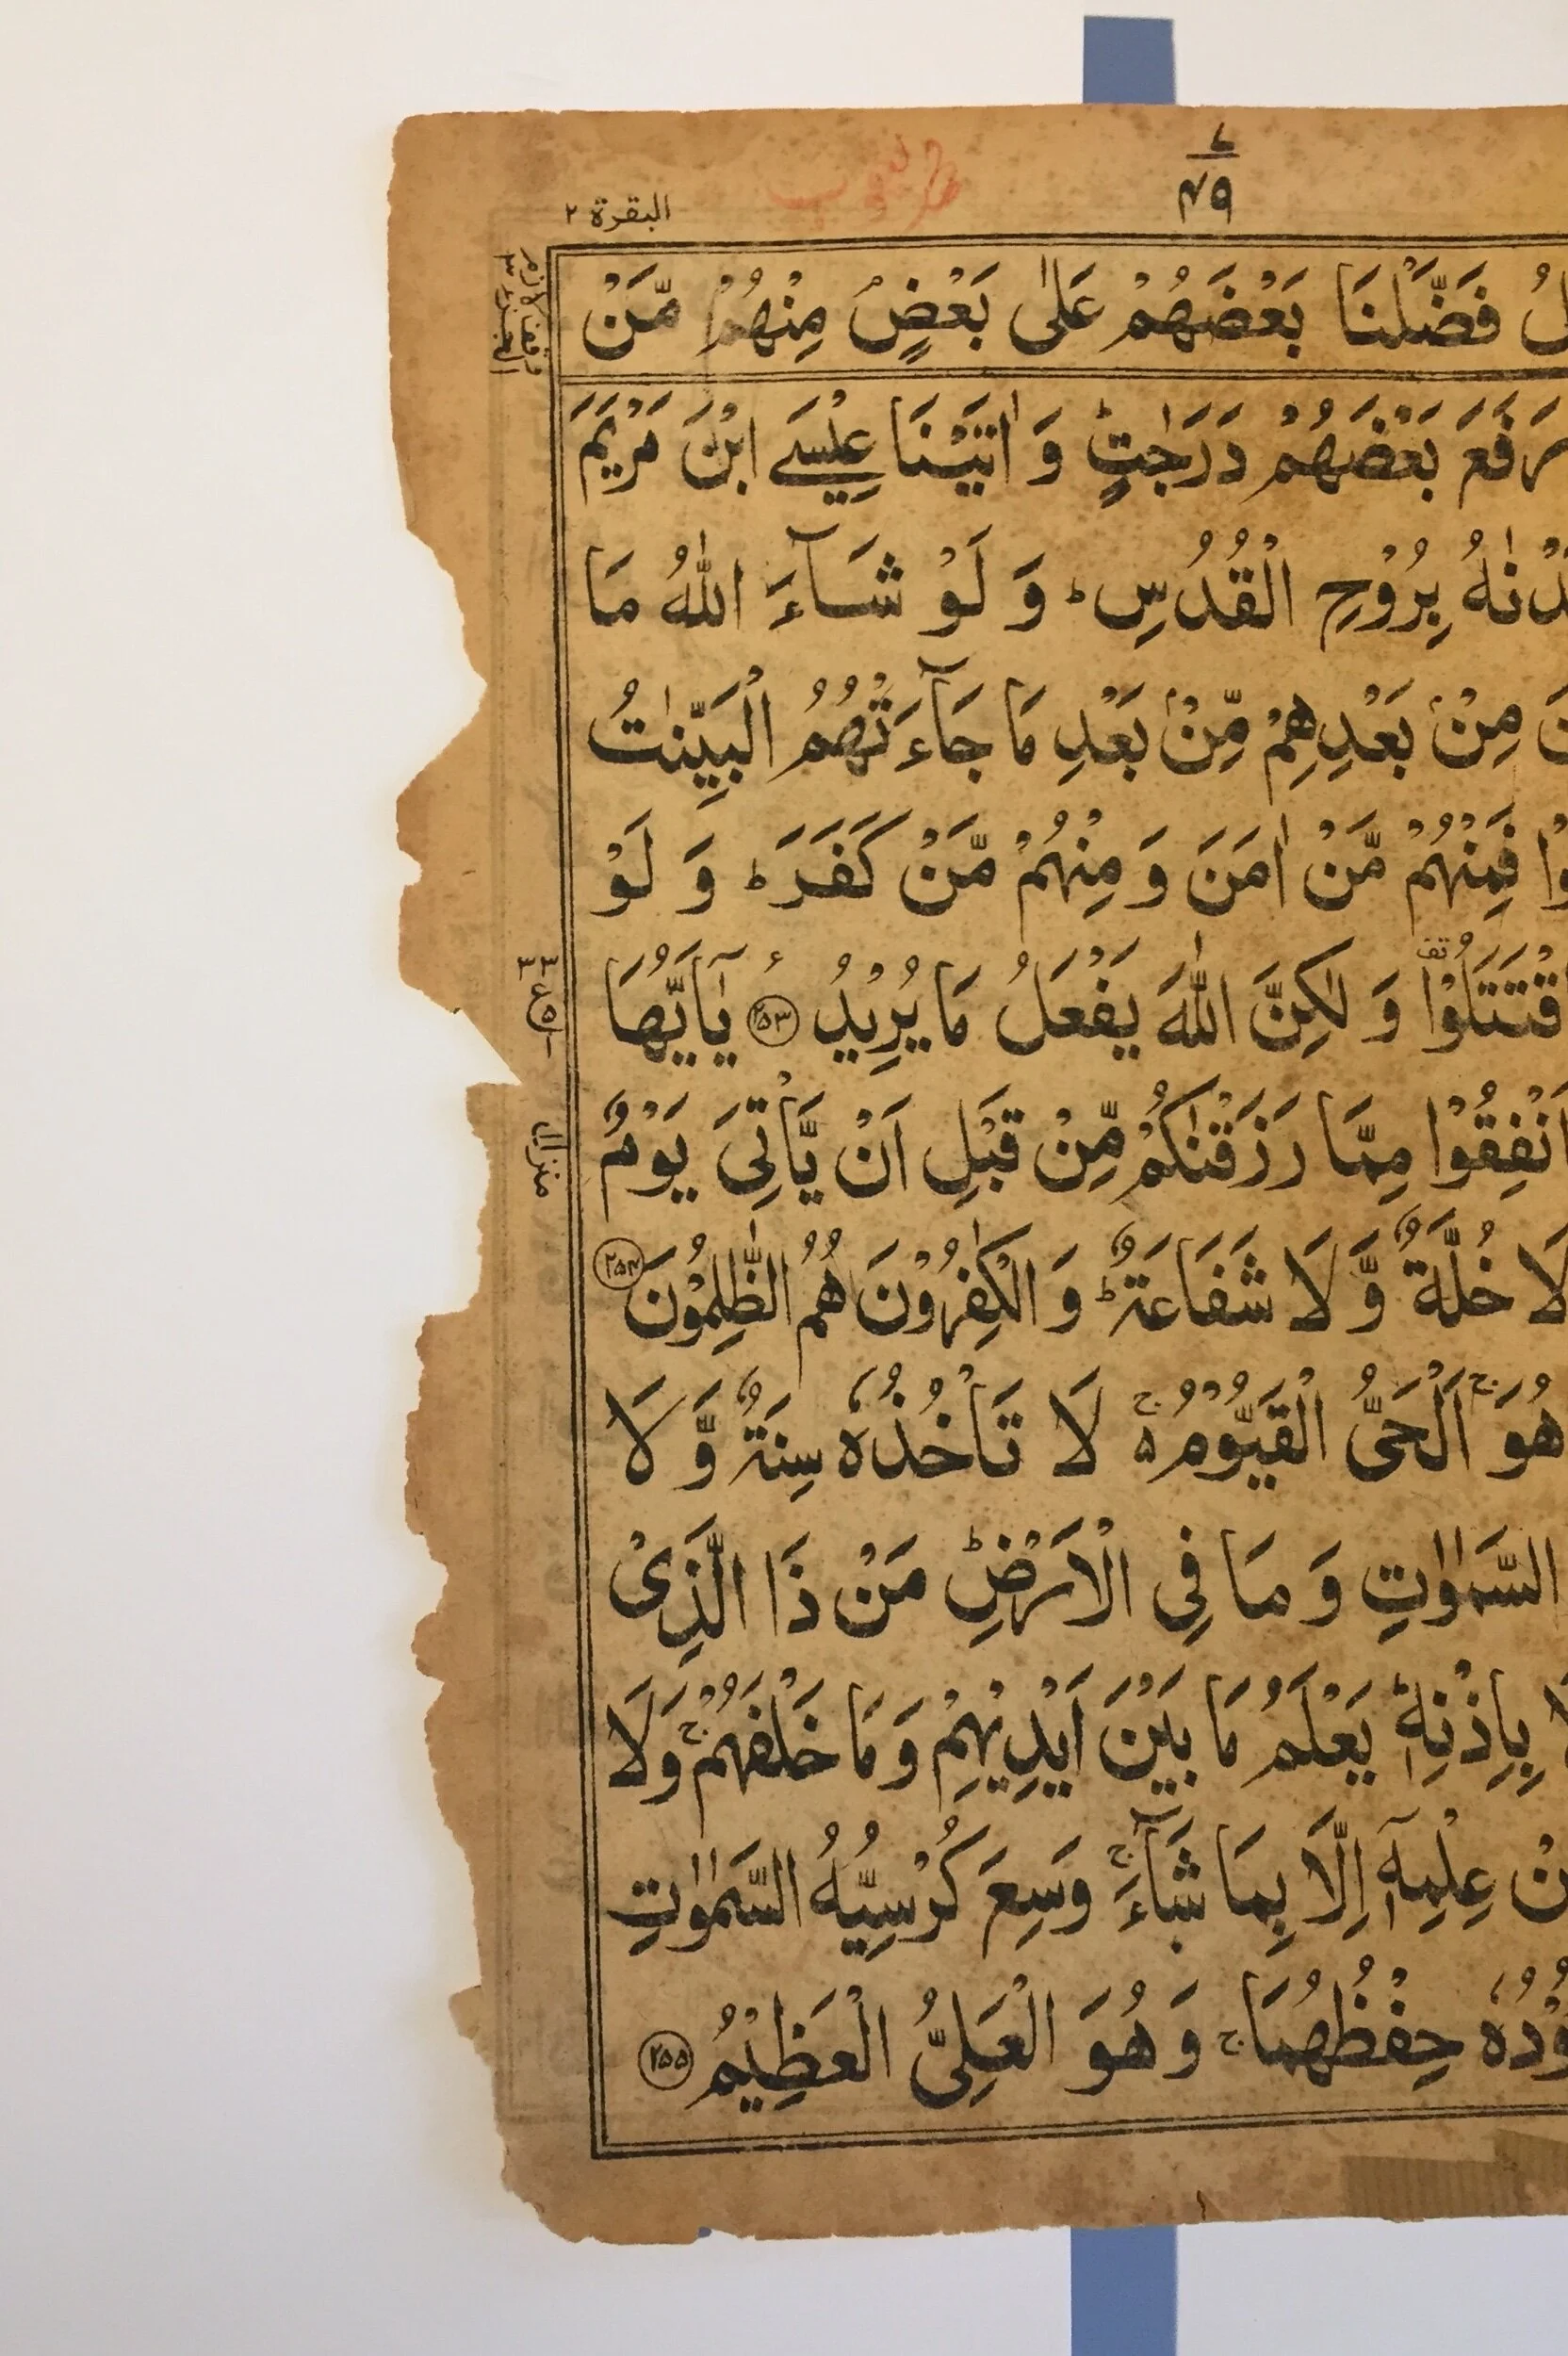 ٤٩
البقرة ٢
فَضَّلْنَا بَعْضَهُمْ عَلٰى بَعْضٍ مِنْهُمْ مَّنْ
رَفَعَ بَعْضَهُمْ دَرَجٰتٍ ؕ وَ اٰتَيْنَا عِيْسَے ابْنَ مَرْيَمَ
بِرُوْحِ الْقُدُسِ ؕ وَ لَوْ شَآءَ اللّٰهُ مَا
مِنْۢ بَعْدِهِمْ مِّنْۢ بَعْدِ مَا جَآءَتْهُمُ الْبَيِّنٰتُ
فَمِنْهُمْ مَّنْ اٰمَنَ وَ مِنْهُمْ مَّنْ كَفَرَ ؕ وَ لَوْ
اقْتَتَلُوْا وَ لٰكِنَّ اللّٰهَ يَفْعَلُ مَا يُرِيْدُ ۲۵۳ يٰۤاَيُّهَا
٣٣
ع
٥
اَنْفِقُوْا مِمَّا رَزَقْنٰكُمْ مِّنْ قَبْلِ اَنْ يَّاْتِيَ يَوْمٌ
منزل
لَا خُلَّةٌ وَّ لَا شَفَاعَةٌ ؕ وَ الْكٰفِرُوْنَ هُمُ الظّٰلِمُوْنَ ۲۵۴
هُوَ ۚ اَلْحَيُّ الْقَيُّوْمُ ۚ۬ لَا تَاْخُذُهٗ سِنَةٌ وَّ لَا
السَّمٰوٰتِ وَ مَا فِي الْاَرْضِ ؕ مَنْ ذَا الَّذِيْ
بِاِذْنِهٖ ؕ يَعْلَمُ مَا بَيْنَ اَيْدِيْهِمْ وَ مَا خَلْفَهُمْ ۚ وَلَا
عِلْمِهٖۤ اِلَّا بِمَا شَآءَ ۚ وَسِعَ كُرْسِيُّهُ السَّمٰوٰتِ
حِفْظُهُمَا ۚ وَ هُوَ الْعَلِيُّ الْعَظِيْمُ ۲۵۵